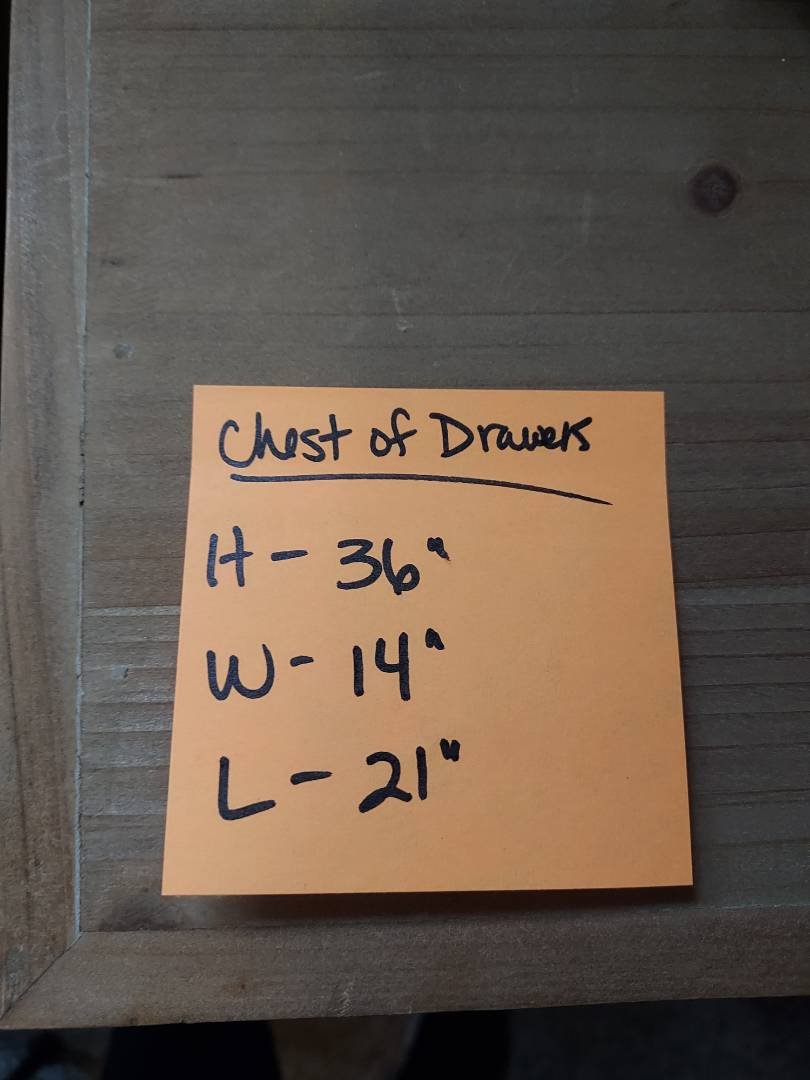 Chest of Drawers
H - 36"
W - 14"
L - 21"